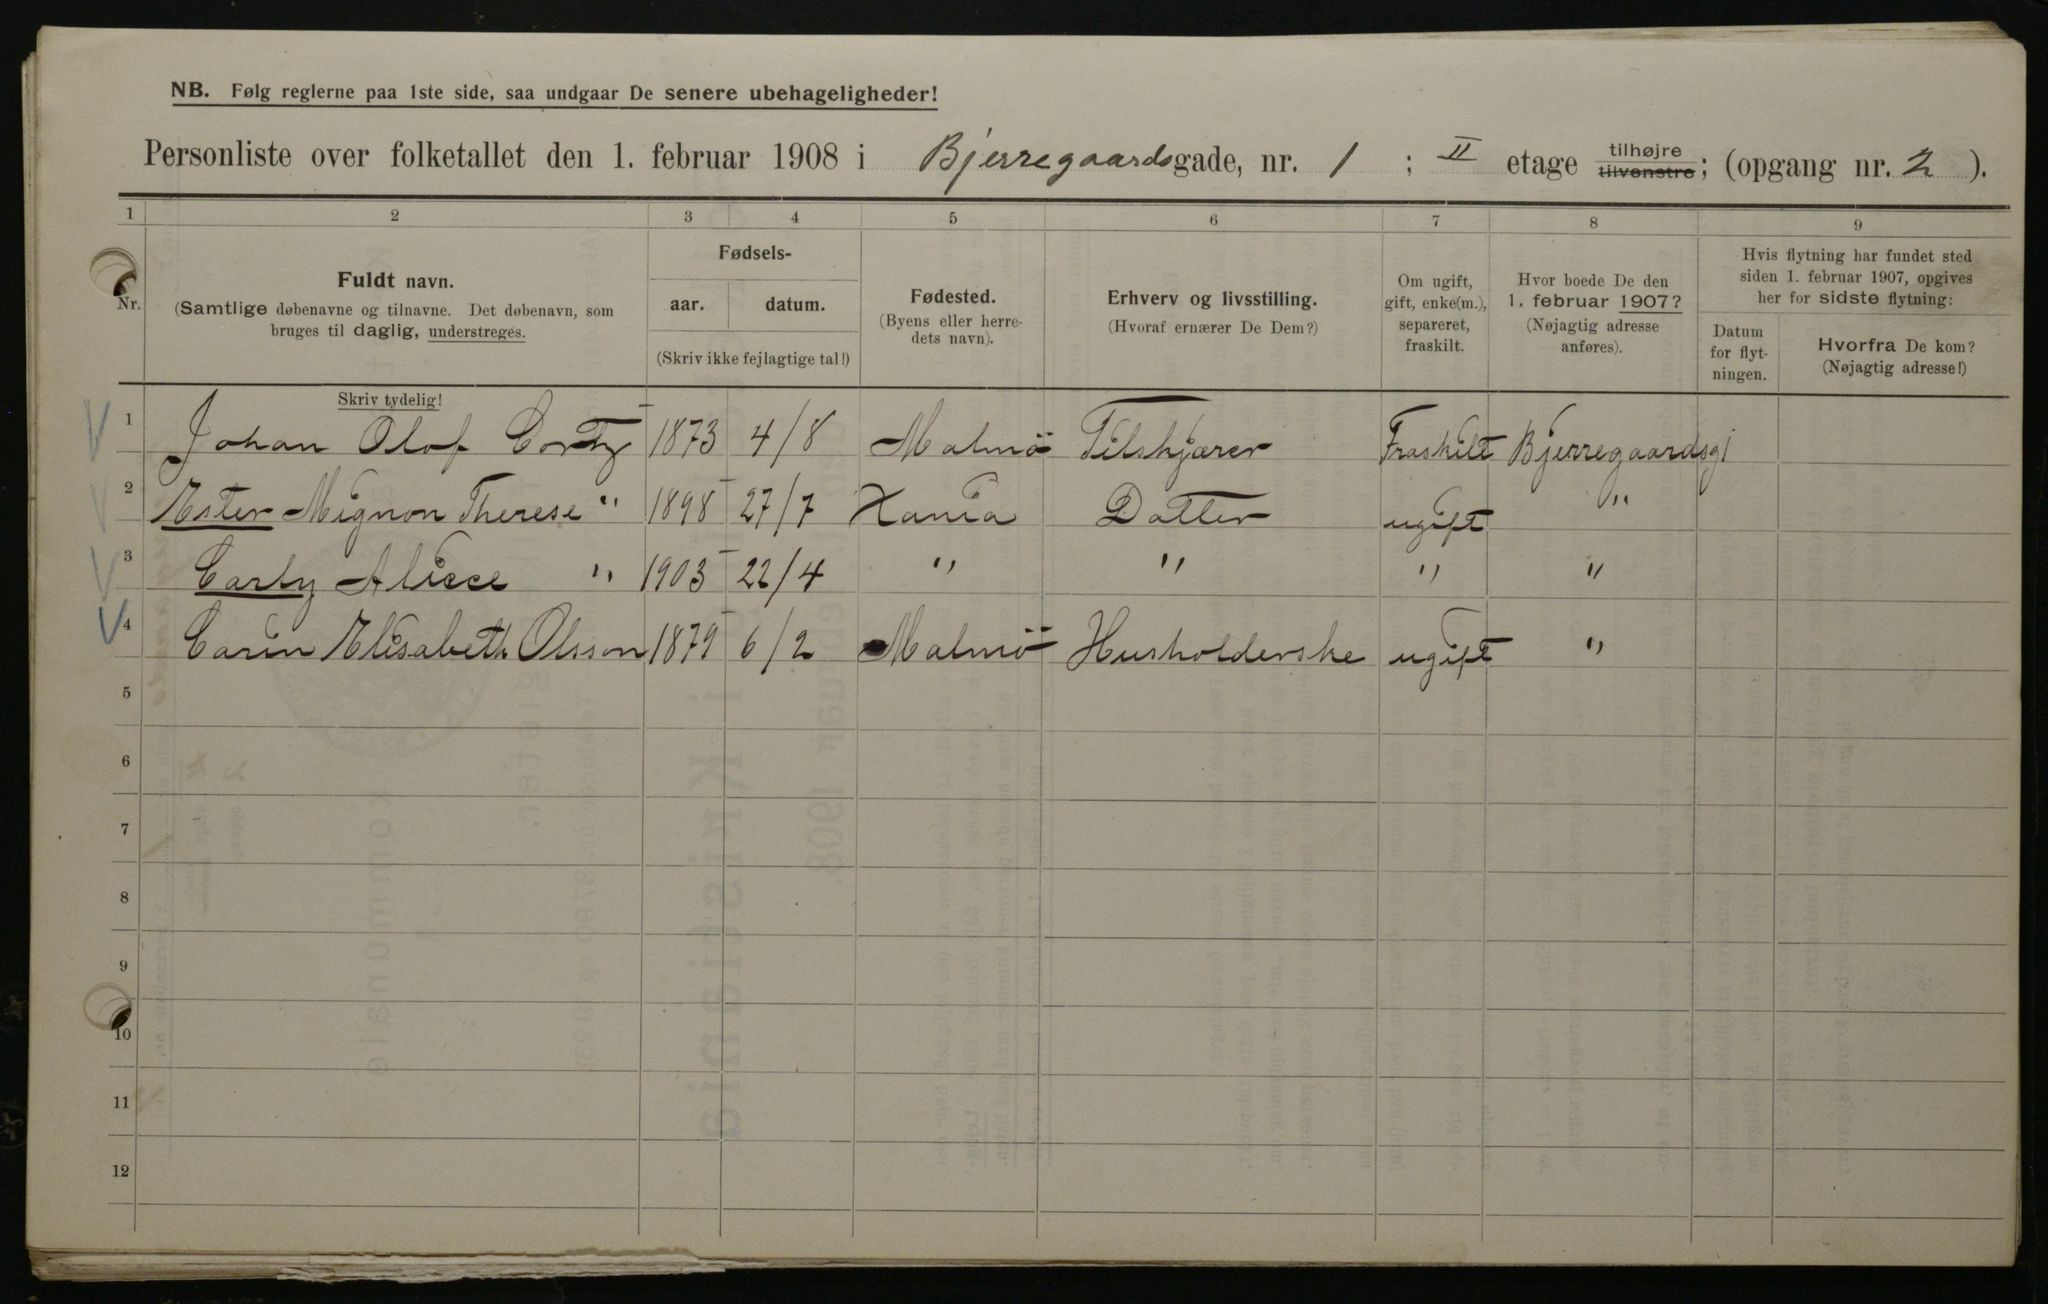 NB. Følg reglerne paa 1ste side, saa undgaar De senere ubehageligheder!
Personliste over folketallet den 1. februar 1908 i Bjerregaardsgade, nr. 1 ; II etage tilhøjre tilvenstre; (opgang nr. 2 ).
1 2 3 4 5 6 7 8 9
Nr.
Fuldt navn.
(Samtlige døbenavne og tilnavne. Det døbenavn, som
bruges til daglig, understreges.
Skriv tydelig!
Fødsels-
aar. datum.
(Skriv ikke fejlagtige tal!)
Fødested.
(Byens eller herre-
dets navn).
Erhverv og livsstilling.
(Hvoraf ernærer De Dem?)
Om ugift,
gift, enke(m.),
separeret,
fraskilt.
Hvor boede De den
1. februar 1907?
(Nøjagtig adresse
anføres).
Hvis flytning har fundet sted
siden 1. februar 1907, opgives
her for sidste flytning:
Datum
for flyt-
ningen.
Hvorfra De kom?
(Nøjagtig adresse!)
1 Johan Olof Corty 1873 4/8 Malmö Filskjærer Fraskilt Bjerregaardsg 1
2 Ester Mignon Therese " 1898 27/7 Xania Datter ugift "
3 Carly Alicce " 1903 22/4 " " " "
4 Carin Elisabeth Olsson 1879 6/2 Malmö Husholderske ugift "
5
6
7
8
9
10
11
12